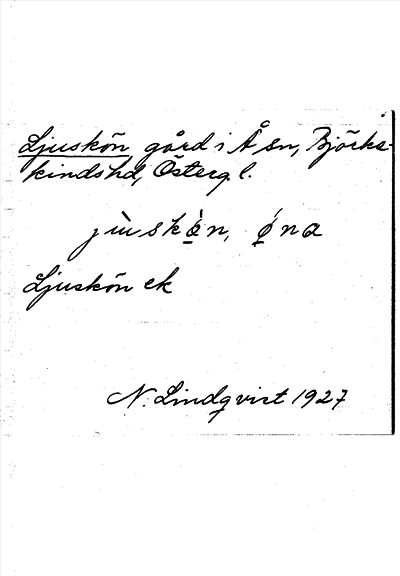 Ljuskön gård i Å sn, Björke-
kinds hd, Östergl.
jùskø̀n, ǿna
Ljuskön ek
N. Lindqvist 1927